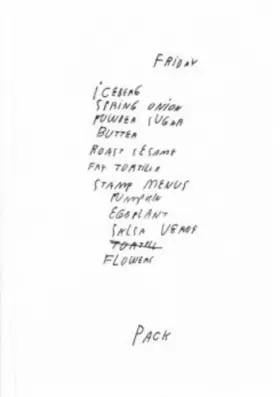 FRIDAY
ICEBERG
SPRING ONION
POWDER SUGAR
BUTTER
ROAST SESAME
FAT TORTILLA
STAMP MENUS
PUMPKIN
EGGPLANT
SALSA VERDE
TORTILL
FLOWERS
PACK